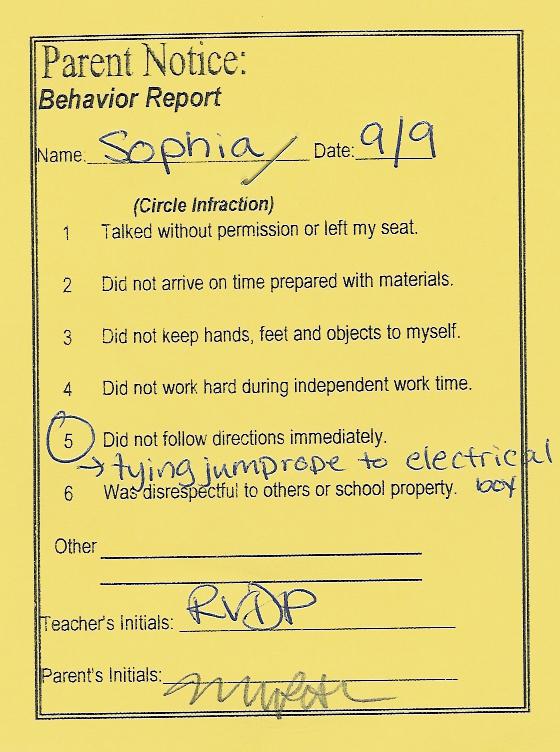 Parent Notice:
Behavior Report
Name: Sophia Date: 9/9
(Circle Infraction)
1 Talked without permission or left my seat.
2 Did not arrive on time prepared with materials.
3 Did not keep hands, feet and objects to myself.
4 Did not work hard during independent work time.
5 Did not follow directions immediately.
→ tying jumprope to electrical
6 Was disrespectful to others or school property. box
Other
Teacher's Initials: RVDP
Parent's Initials: